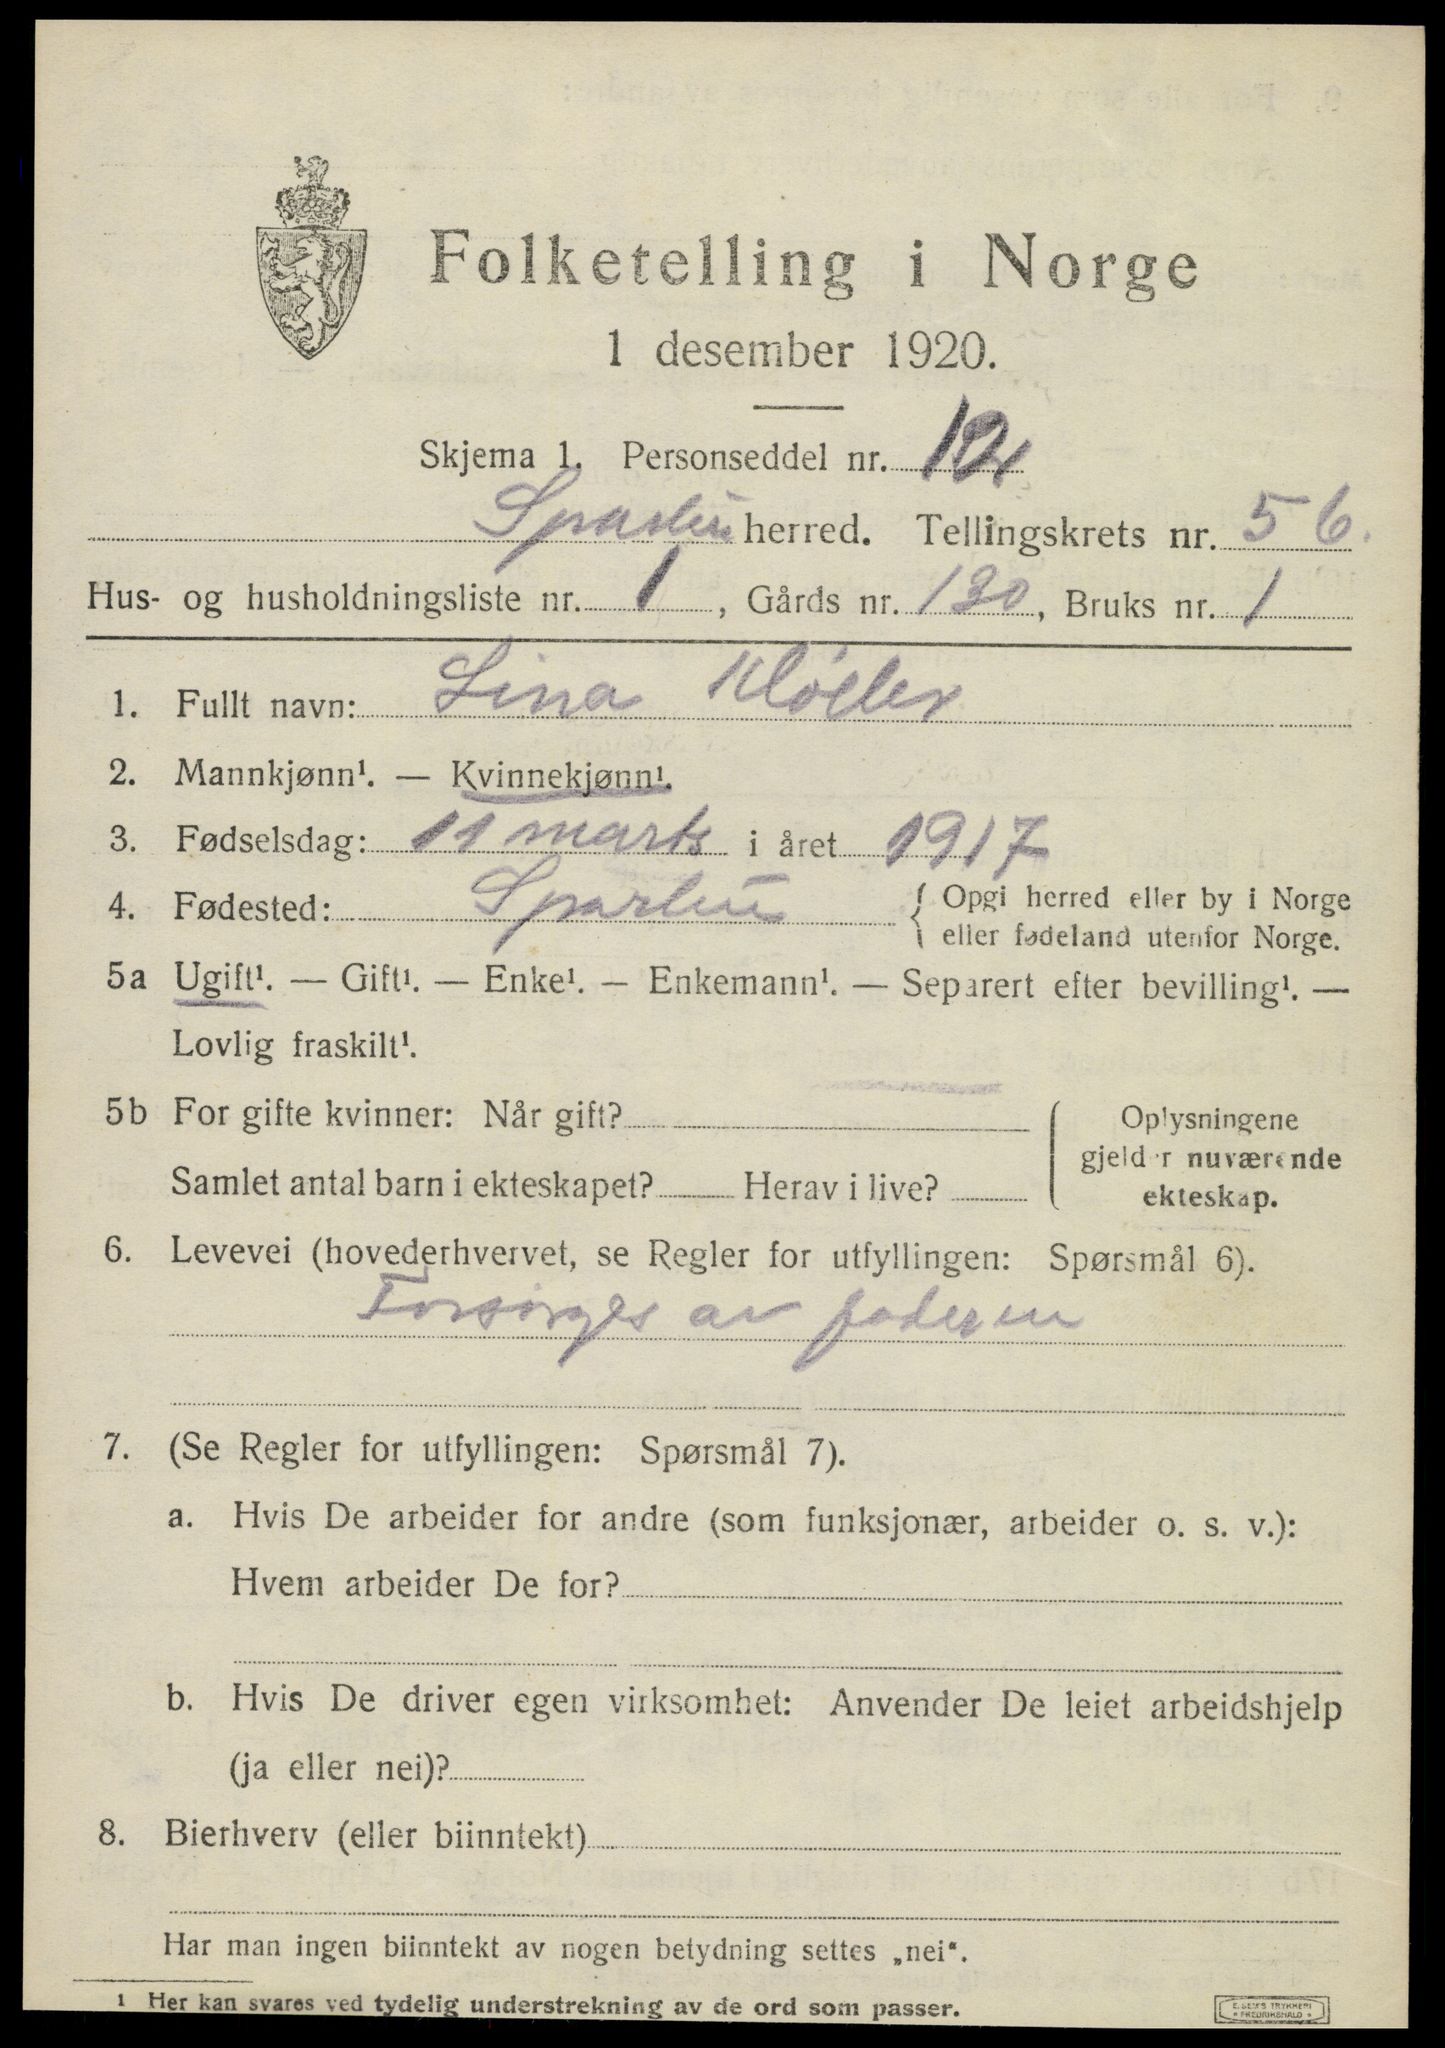 Folketelling i Norge
1 desember 1920.
Skjema 1. Personseddel nr. 12
Sparbu herred. Tellingskrets nr. 5 6.
Hus- og husholdningsliste nr. 1, Gårds nr. 130, Bruks nr. 1
1. Fullt navn: Lina Kløvler
2. Mannkjønn¹. — Kvinnekjønn¹.
3. Fødselsdag: 11 marts i året 1917
4. Fødested: Sparbu { Opgi herred eller by i Norge
eller fødeland utenfor Norge.
5a Ugift¹. — Gift¹. — Enke¹. — Enkemann¹. — Separert efter bevilling¹. —
Lovlig fraskilt¹.
5b For gifte kvinner: Når gift?
Samlet antal barn i ekteskapet? Herav i live?
Oplysningene
gjelder nuværende
ekteskap.
6. Levevei (hovederhvervet, se Regler for utfyllingen: Spørsmål 6).
Forsørges av faderen
7. (Se Regler for utfyllingen: Spørsmål 7).
a. Hvis De arbeider for andre (som funksjonær, arbeider o. s. v.):
Hvem arbeider De for?
b. Hvis De driver egen virksomhet: Anvender De leiet arbeidshjelp
(ja eller nei)?
8. Bierhverv (eller biinntekt)
Har man ingen biinntekt av nogen betydning settes „nei“.
1 Her kan svares ved tydelig understrekning av de ord som passer.
E. SEM'S TRYKKERI
FREDRIKSHALD